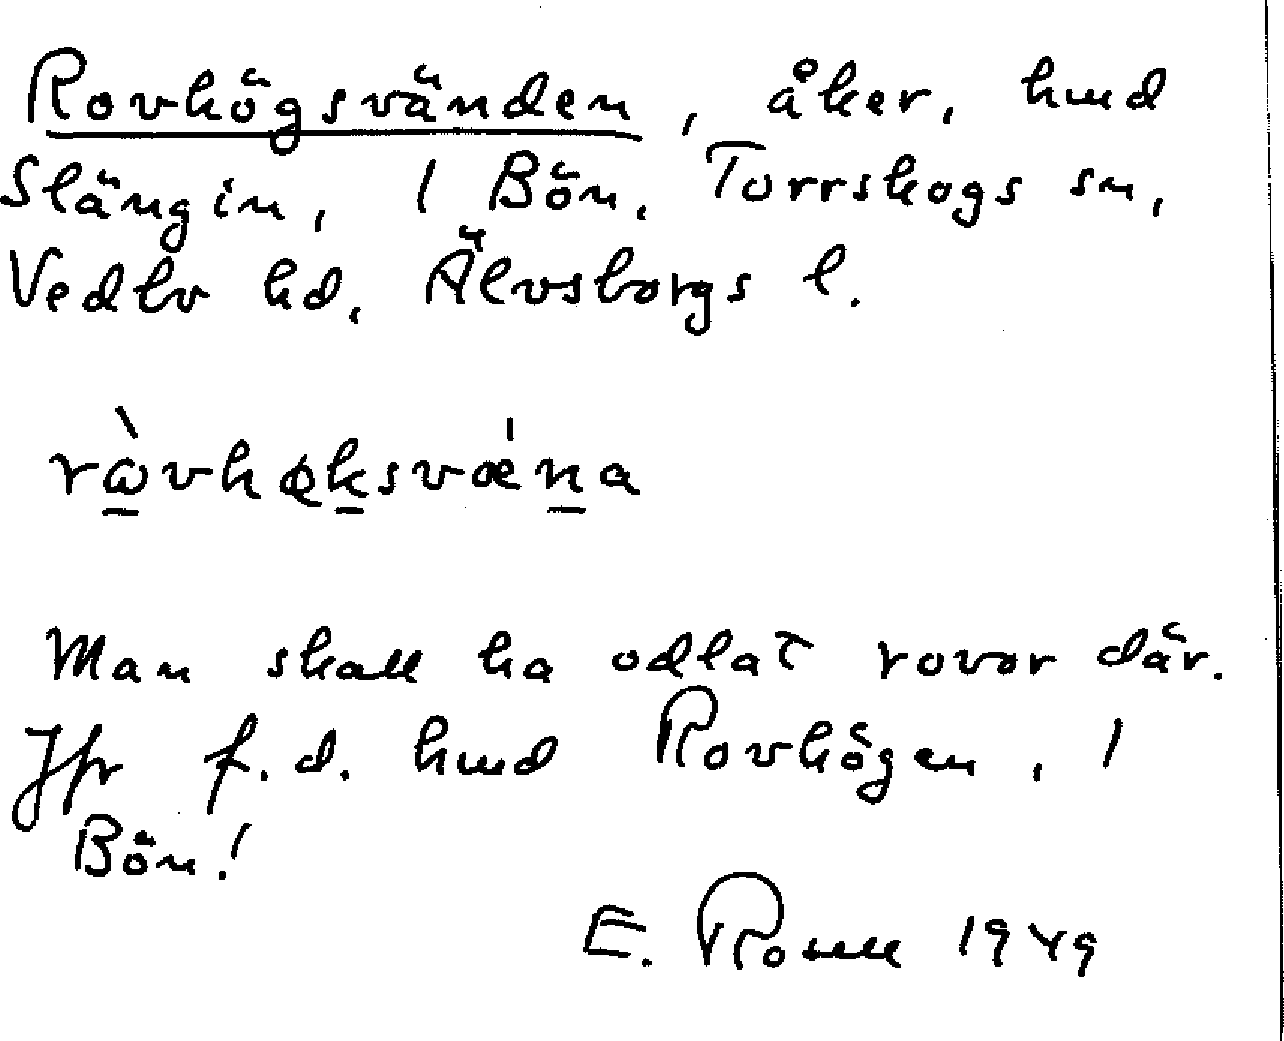 Rovhögsvänden, åker, hmd
Slängin, 1 Bön, Torrskogs sn,
Vedbo hd, Älvsborgs l.
Man skall ha odlat rovor där.
Jfr f.d. hmd Rovhögen, 1
Bön!
E. 1949